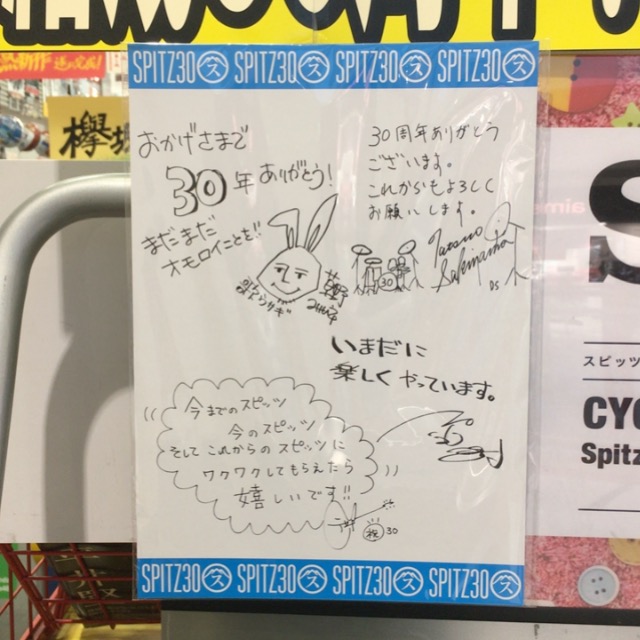 SPITZ30 ス SPITZ30 ス SPITZ30 ス SPITZ30 ス
欅坂
おかげさまで
30年ありがとう!
まだまだ
オモロイことを!!
草野
30周年ありがとう
ございます。
これからもよろしく
お願いします。
30
いまだに
楽しくやっています。
今までのスピッツ
今のスピッツ
そしてこれからのスピッツに
ワクワクしてもらえたら
嬉しいです!!
祝 30
スピッツ
CYC
Spitz
SPITZ30 ス SPITZ30 ス SPITZ30 ス SPITZ30 ス